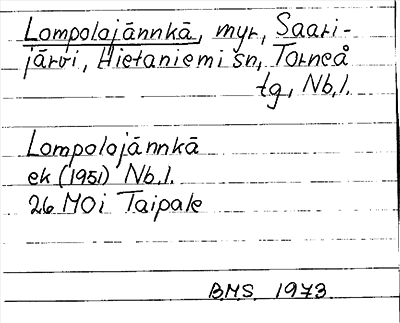 Lompolojännkä, myr, Saari-
järvi, Hietaniemi sn, Torneå
tg, Nb.l.
Lompolojännkä
ek (1951) Nb.l.
26 M0i Taipale
B.M.S. 1973